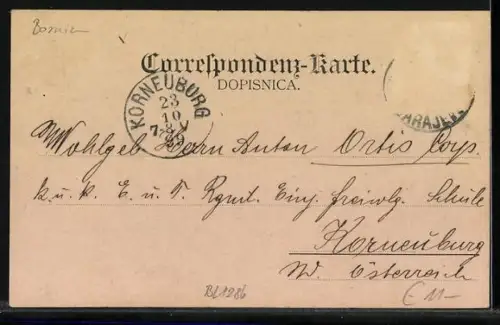 Bosnien
Correspondenz-Karte.
DOPISNICA.
KORNEUBURG
23
10
99
SARAJEVO
Wohlgeb Herrn Anton Ortis Corp.
k. u. k. E. u. T. Rgmt. Einj. freiwlg. Schule
Korneuburg
Nd. Österreich
BL1286
€ 11-